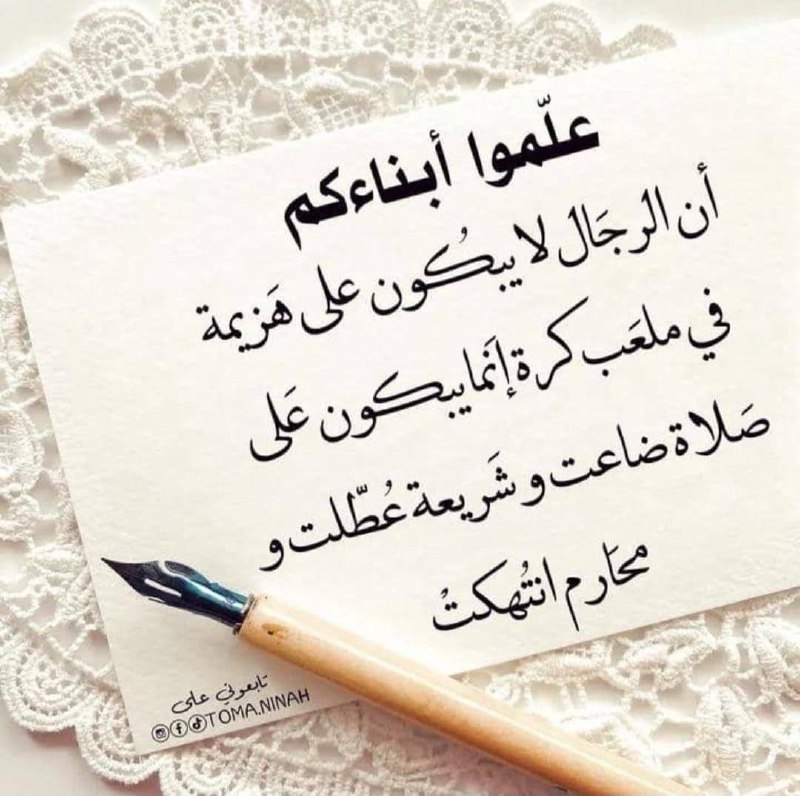 علّموا أبناءكم
أن الرجَال لا يبكُون على هَزيمة
في ملعَب كرة إنَما يبكون عَلى
صَلاة ضاعت و شَريعة عُطّلت و
محَارم انتُهكتْ
تابعوني على
TOMA.NINAH